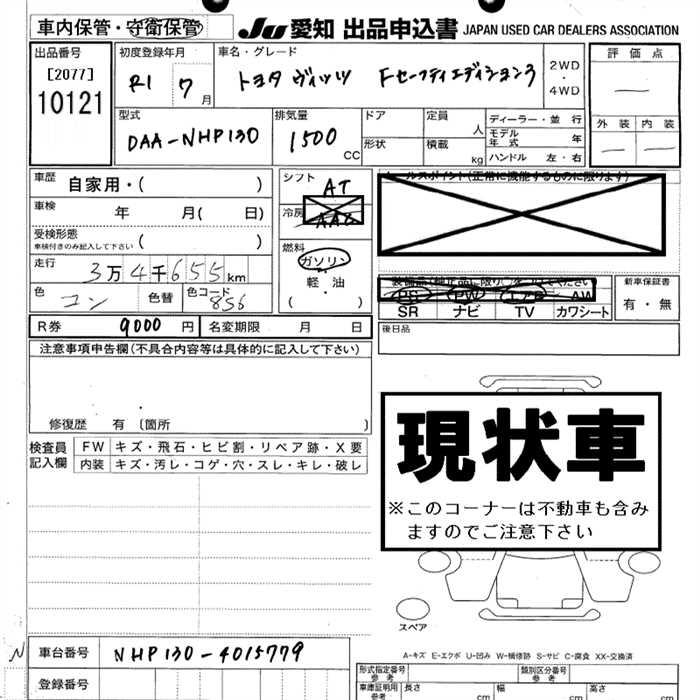 車内保管・守衛保管 JU 愛知 出品申込書 JAPAN USED CAR DEALERS ASSOCIATION
出品番号
[2077]
10121
初度登録年月
R1 7月
車名・グレード
トヨタ ヴィッツ Fセーフティエディション3
2WD・4WD
評価点
—
外装 内装
— —
型式
DAA-NHP130
排気量
1500 CC
ドア
定員 人
形状
積載 kg
ディーラー・並行
モデル年式 年
ハンドル 左・右
車歴 自家用・( )
車検 年 月( 日)
受検形態
車検付きのみ記入して下さい ( )
走行 3万4千655km
色 コン 色替 色コード 856
シフト AT
冷房 AAC
燃料
ガソリン
軽・油
( ・ )
セールスポイント(正常に機能するものに限ります)
装備品(純正品に限り○をしてください)
PS PW エアB AW
SR ナビ TV カワシート
新車保証書
有・無
後日品
R券 9000円 名変期限 月 日
注意事項申告欄(不具合内容等は具体的に記入して下さい)
修復歴 有 〔箇所 〕
検査員記入欄
FW キズ・飛石・ヒビ割・リペア跡・X要
内装 キズ・汚レ・コゲ・穴・スレ・キレ・破レ
現状車
※このコーナーは不動車も含み
ますのでご注意下さい
スペア
A-キズ E-エクボ U-凹み W-補修跡 S-サビ C-腐食 XX-交換済
N 車台番号 NHP130-4015779
登録番号
形式指定番号 参考
類別区分番号 参考
車庫証明用 参考
長さ cm 幅 cm 高さ cm